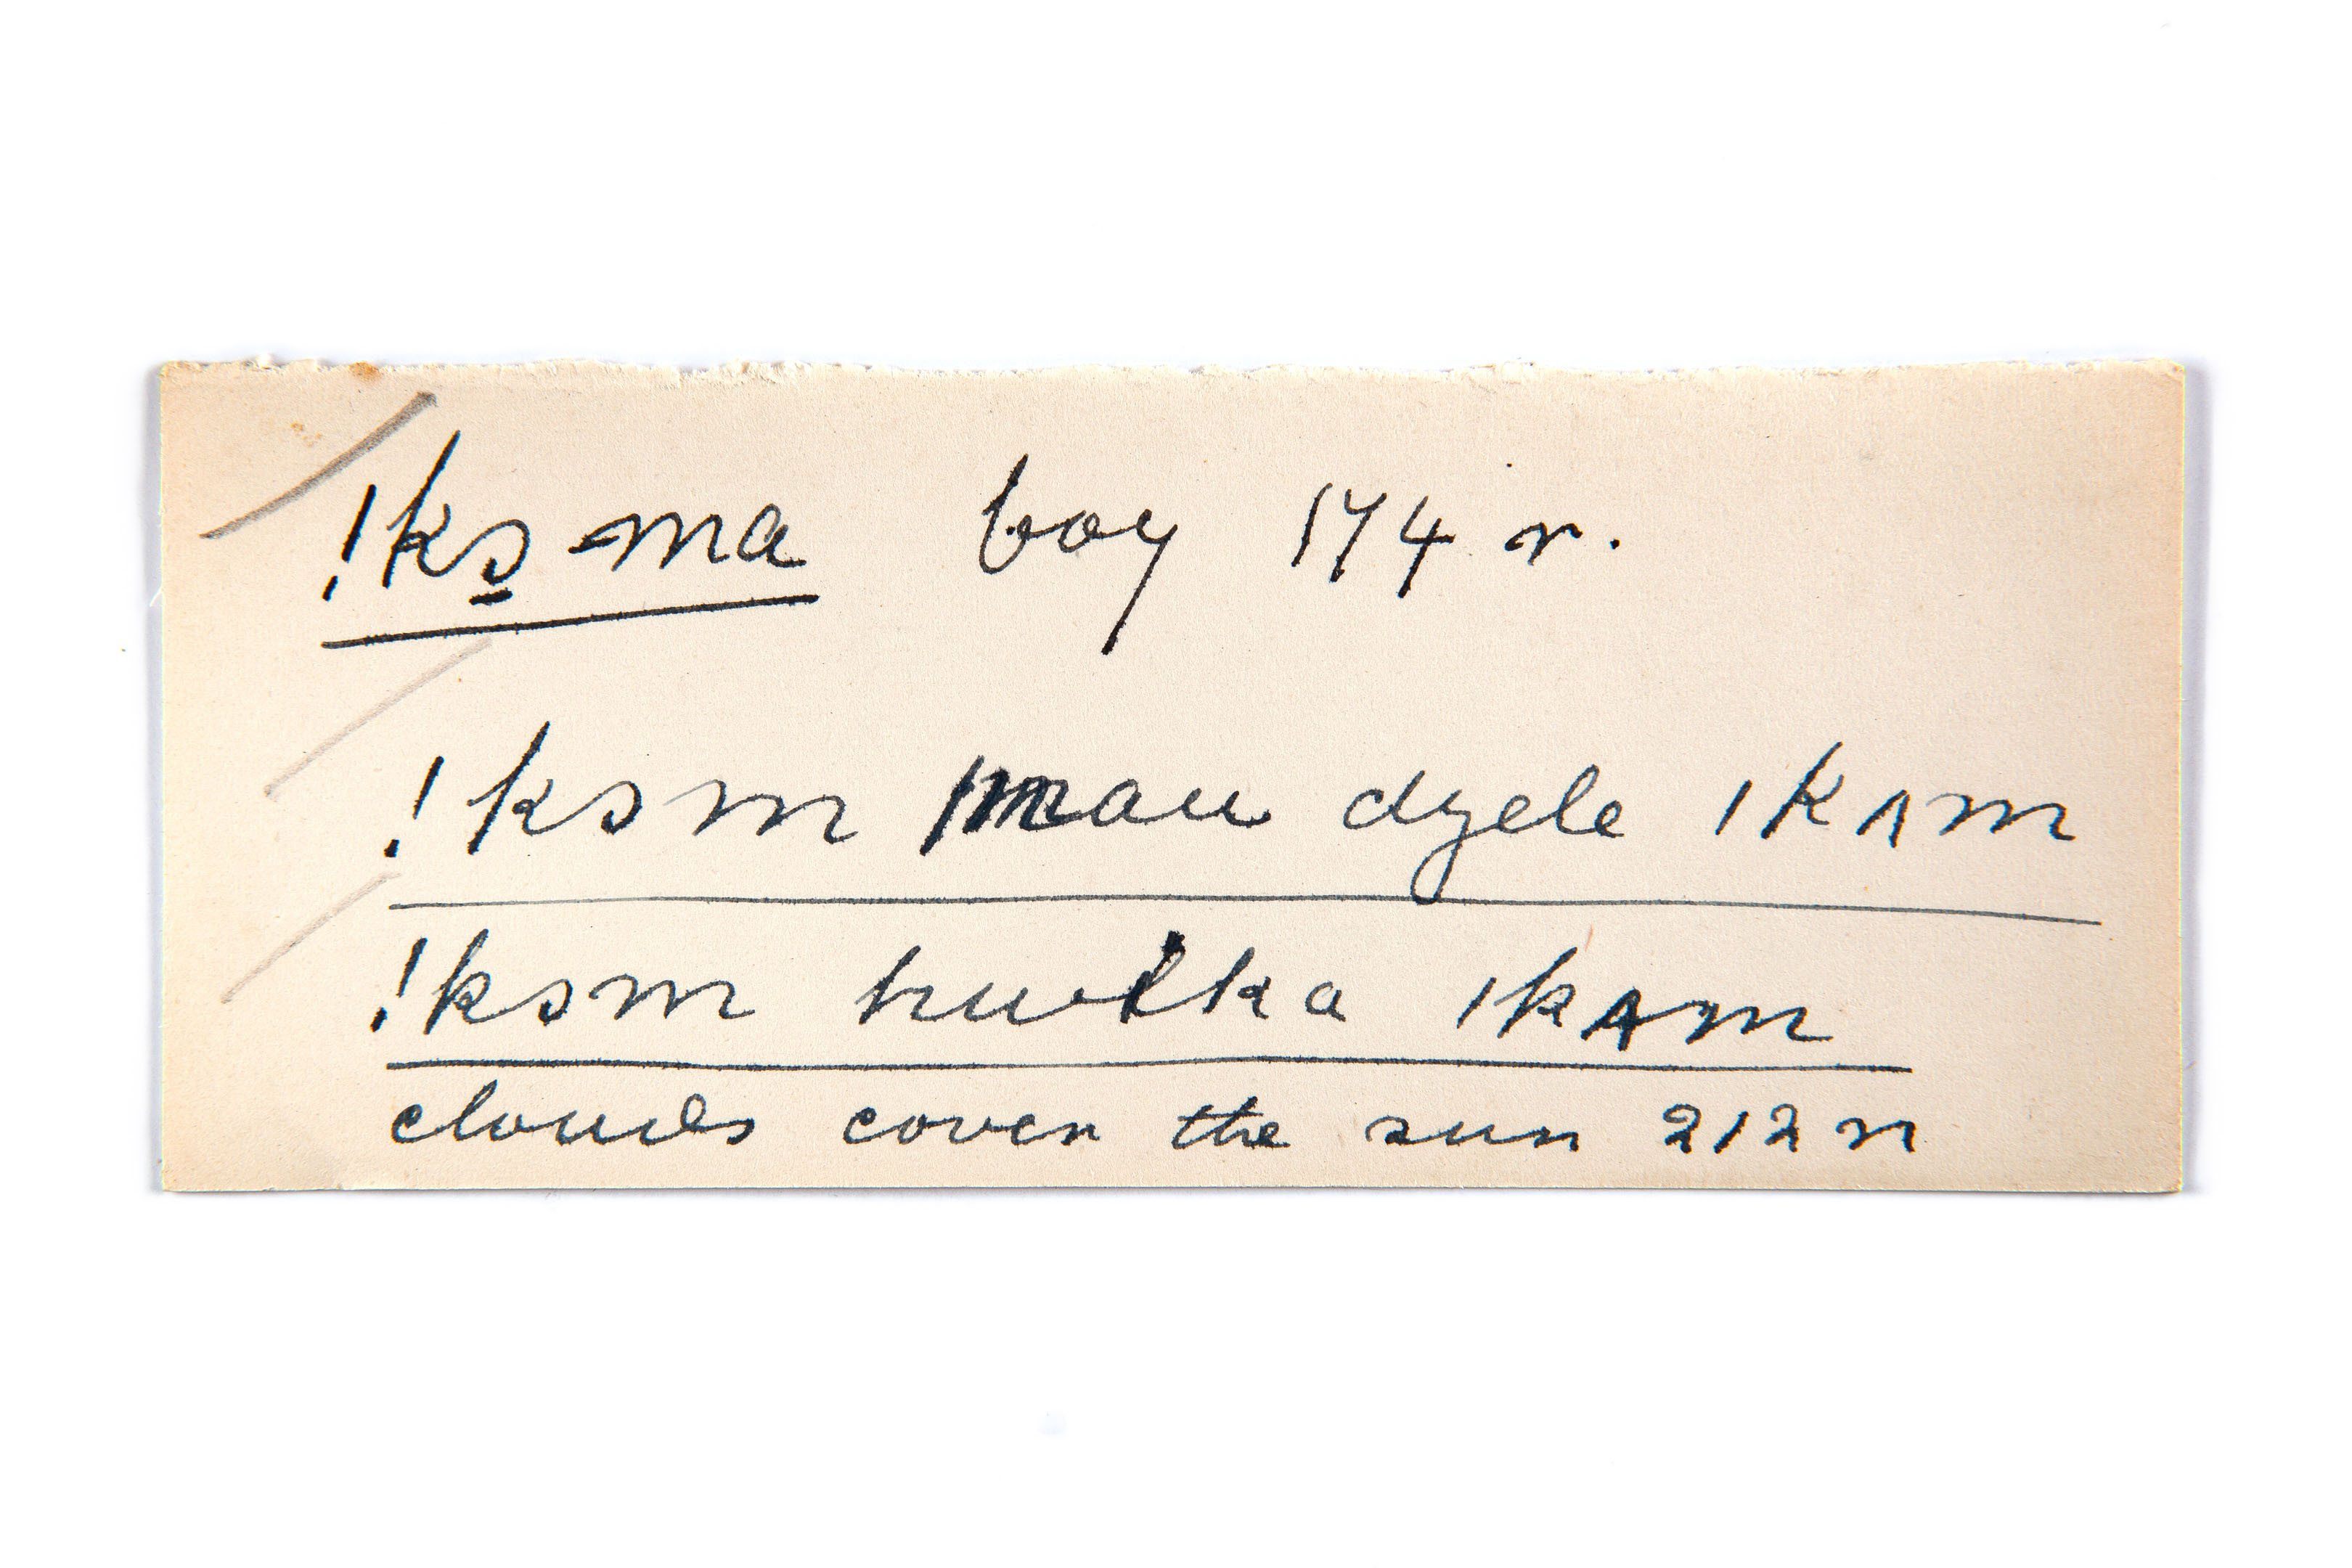 !kɔ̱-ma boy 174 r.
!kɔm dzele ǀkʌm
!kɔm ǀkʌm
clouds cover the sun 212 r